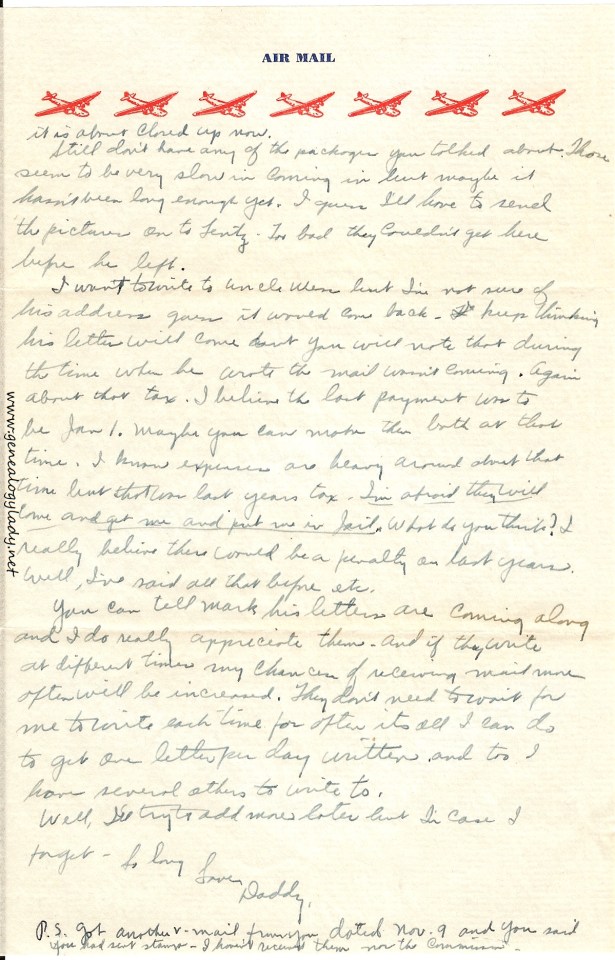 AIR MAIL
it is about closed up now.
Still don't have any of the packages you talked about. Those
seem to be very slow in coming in but maybe it
hasn't been long enough yet. I guess I'll have to send
the pictures on to Lentz. Too bad they couldn't get here
before he left.
I want to write to Uncle Wem but I'm not sure of
his address guess it would come back - I keep thinking
his letter will come but you will note that during
the time when he wrote the mail wasn't coming. Again
about that tax. I believe the last payment was to
be Jan 1. Maybe you can make them both at that
time. I know expenses are heavy around about that
time but that was last years tax - I'm afraid they will
come and get me and put me in Jail. What do you think? I
really believe there would be a penalty on last years.
Well, I've said all that before etc.
You can tell Mark his letters are coming along
and I do really appreciate them - and if they write
at different times my chances of receiving mail more
often will be increased. They don't need to wait for
me to write each time for often its all I can do
to get one letter per day written and too I
have several others to write to.
Well, I'll try to add more later but in case I
forget - So long
Love,
Daddy,
P.S. Got another v-mail from you dated Nov. 9 and you said
you had sent stamps - I haven't received them nor the Commission -
www.genealogylady.net